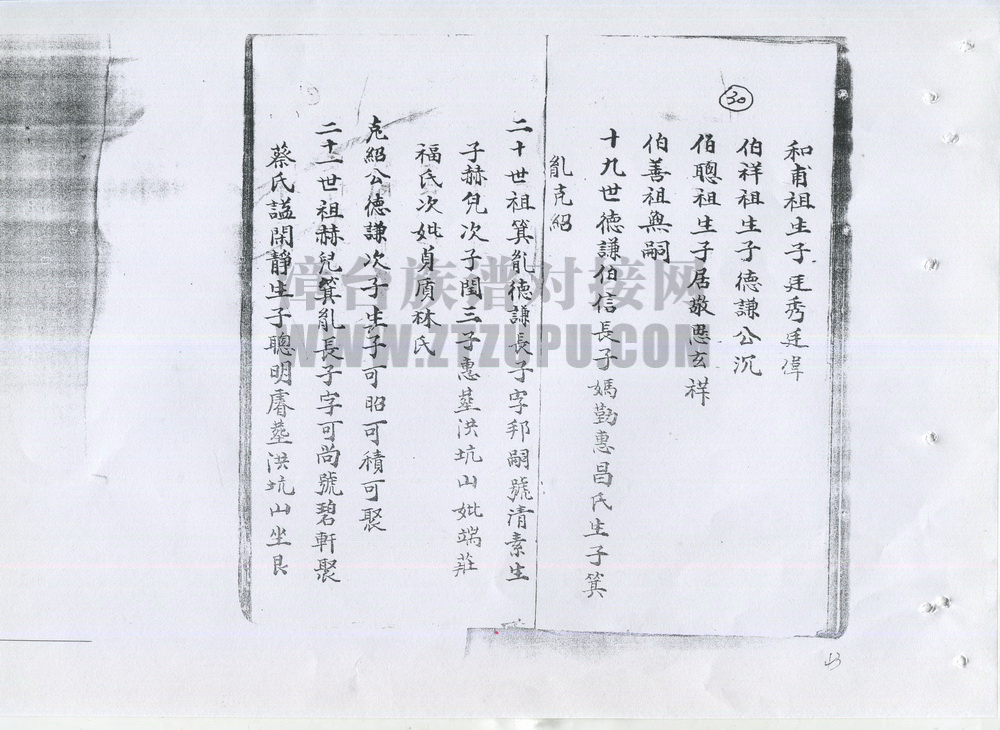 30
和甫祖生子廷秀廷偉
伯祥祖生子德謙公沉
伯聰祖生子居敬思玄祥
伯善祖無嗣
十九世德謙伯信長子媽勤惠昌氏生子箕
胤克紹
二十世祖箕胤德謙長子字邦嗣號清素生
子赫兒次子閏三子惠塟洪坑山妣端莊
福氏次妣貞質林氏
克紹公德謙次子生子可昭可積可聚
二十一世祖赫兒箕胤長子字可尚號碧軒娶
蔡氏謚閑靜生子聰明睿塟洪坑山坐艮
漳台族谱对接网
WWW.ZTZUPU.COM